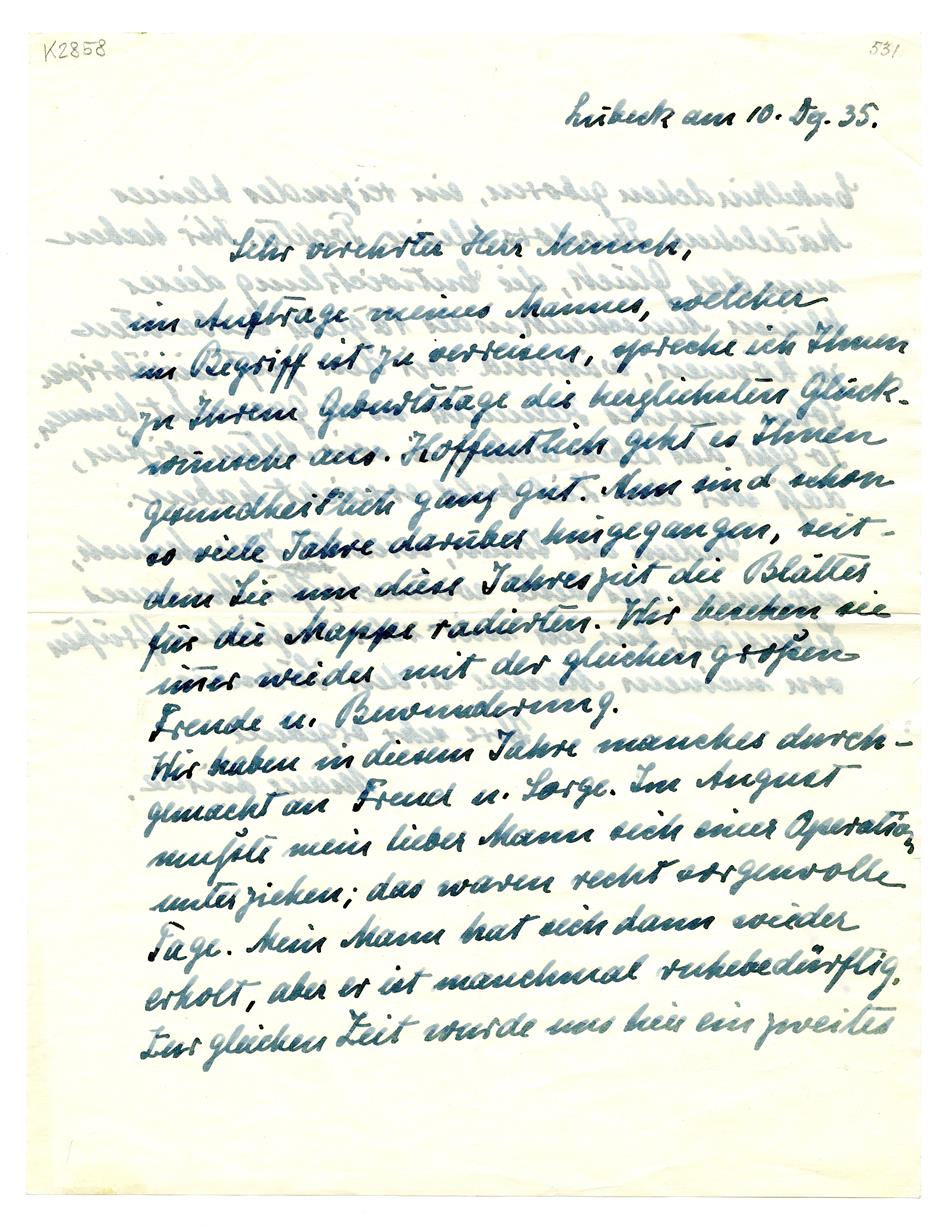 K2858
531
Lübeck am 10. Dez. 35.
Sehr verehrter Herr Munch,
im Auftrage meines Mannes, welcher
im Begriff ist zu verreisen, spreche ich Ihnen
zu Ihrem Geburtstage die herzlichsten Glück-
wünsche aus. Hoffentlich geht es Ihnen
gesundheitlich ganz gut. Nun sind schon
so viele Jahre darüber hingegangen, seit-
dem Sie um diese Jahreszeit die Blätter
für die Mappe radierten. Wir besehen sie
immer wieder mit der gleichen großen
Freude u. Bewunderung.
Wir haben in diesem Jahre manches durch-
gemacht an Freud u. Sorge. Im August
mußte mein lieber Mann sich einer Operation
unterziehen; das waren recht sorgenvolle
Tage. Mein Mann hat sich dann wieder
erholt, aber er ist manchmal ruhebedürftig.
Zur gleichen Zeit wurde uns hier ein zweites